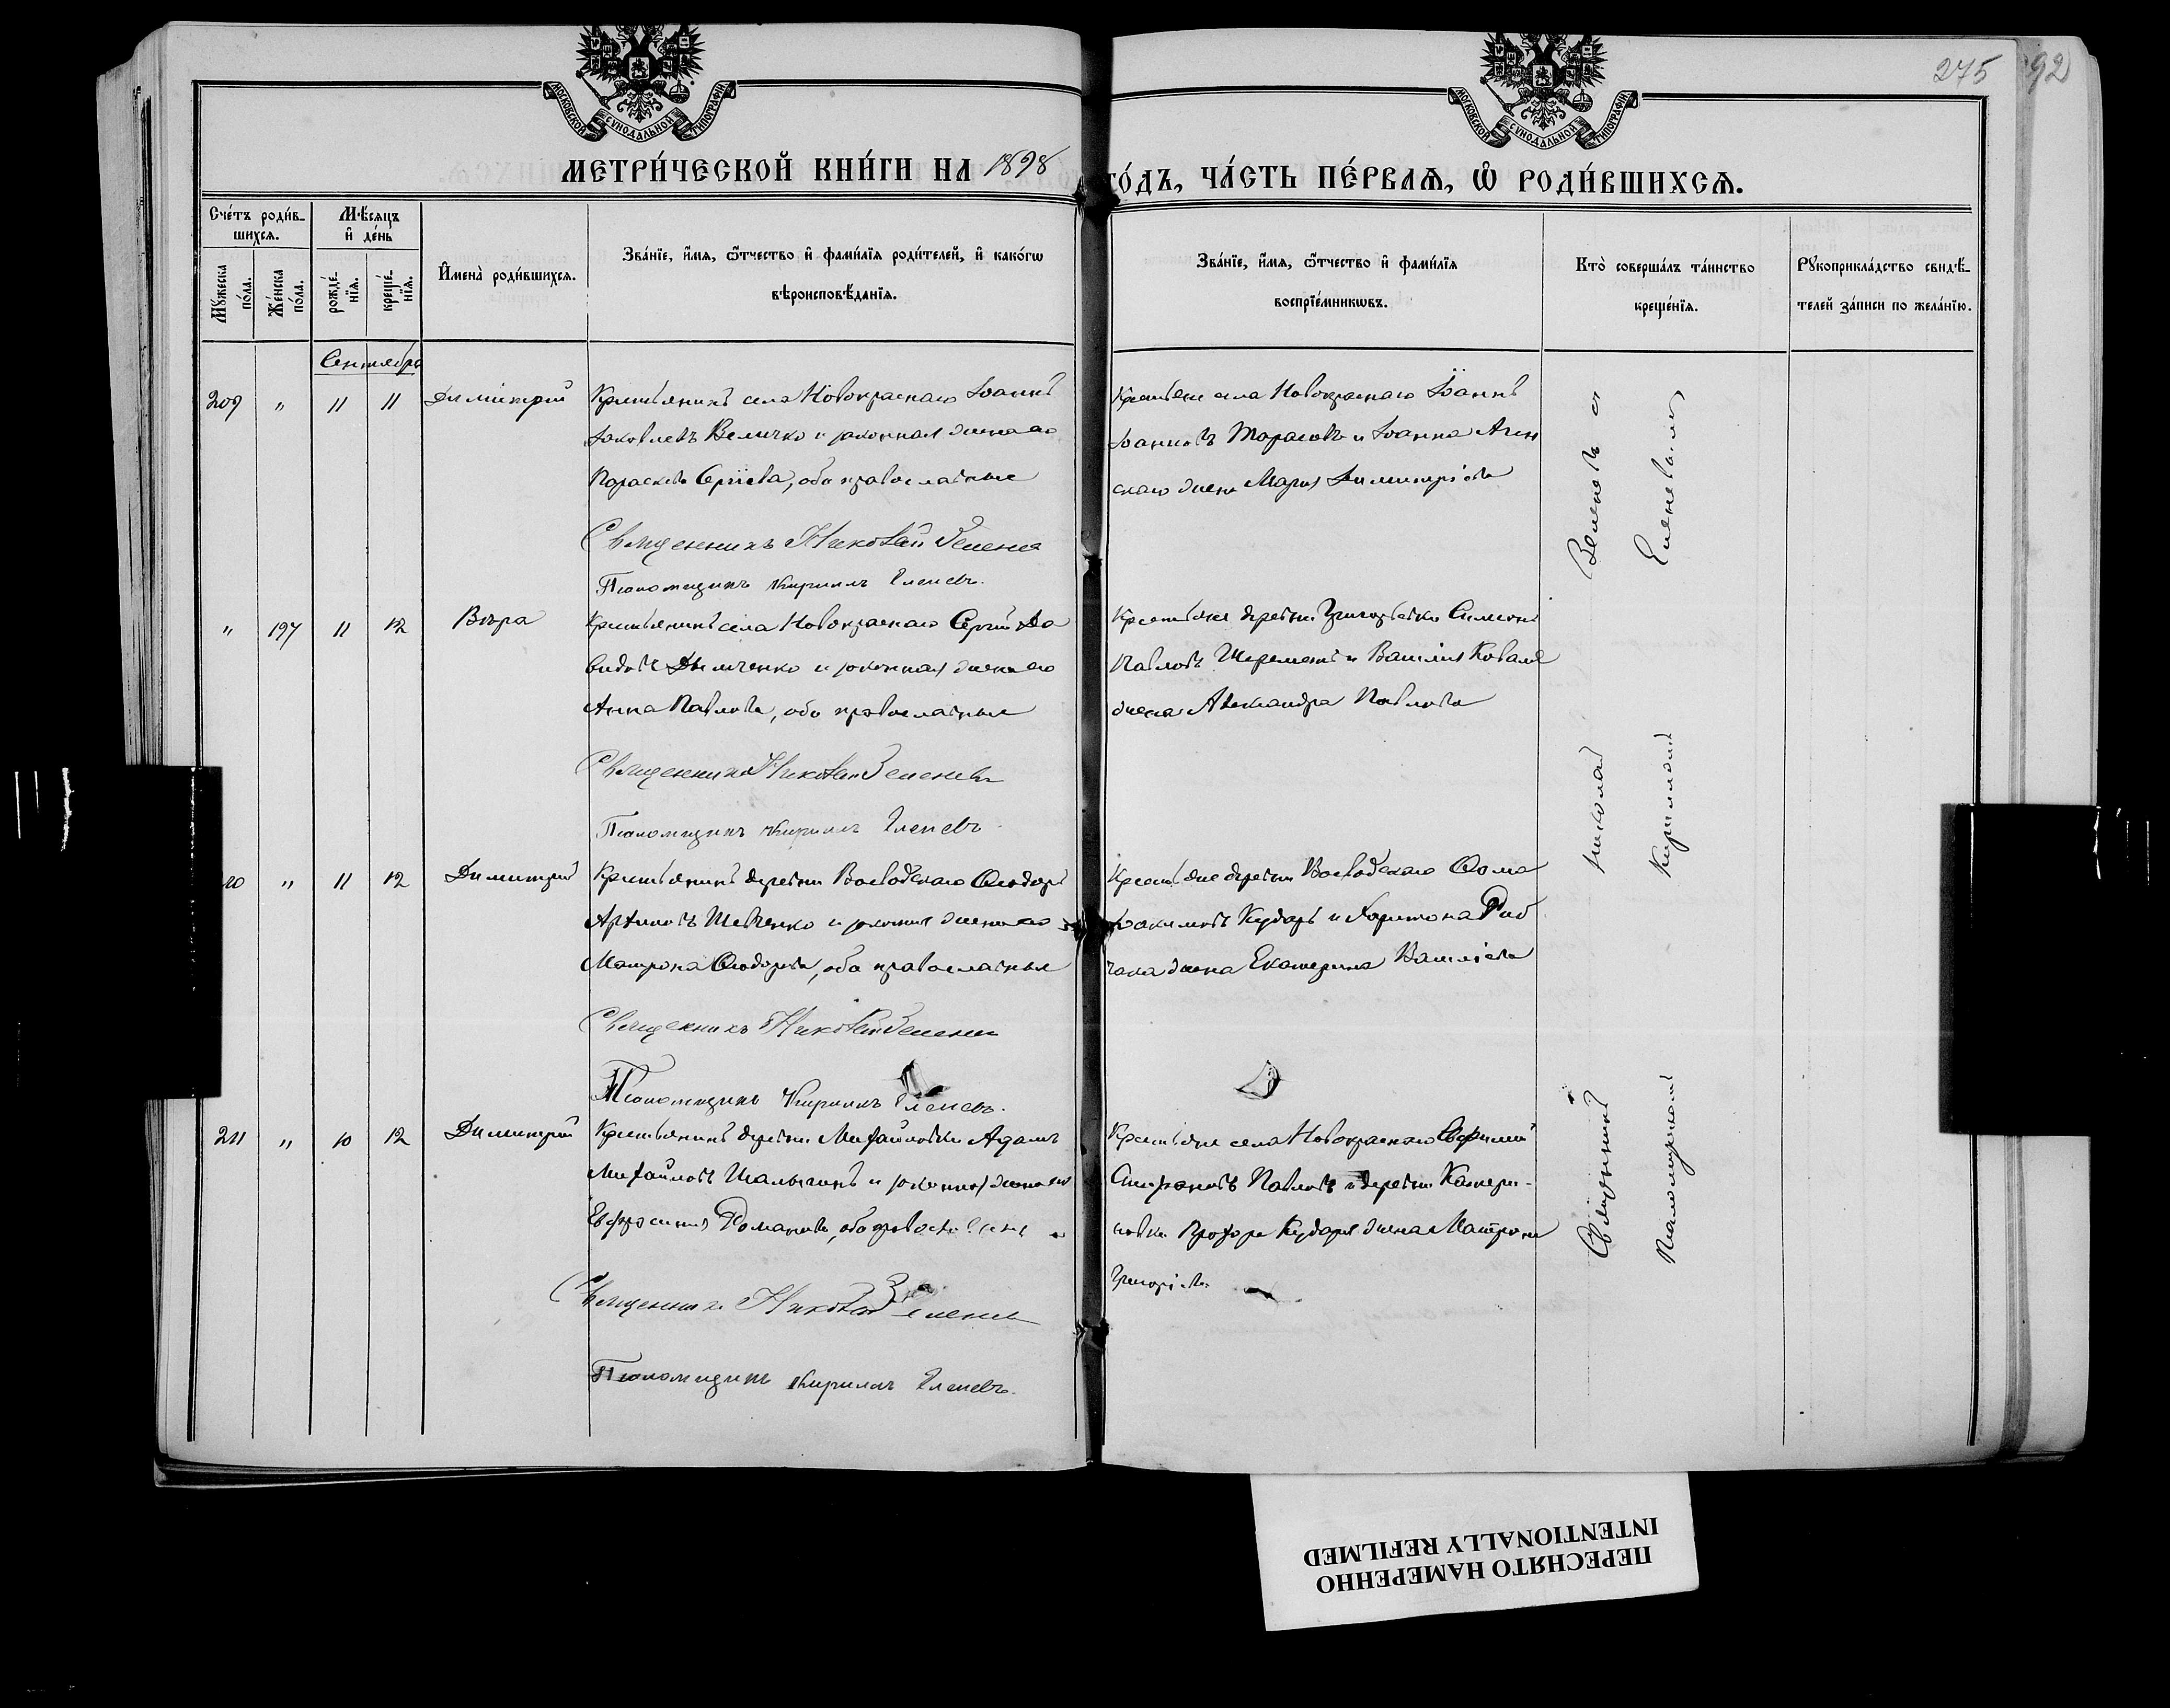 275
92
МОСКОВСКОЙ СУНОДАЛЬНОЙ ТИПОГРАФІИ
МОСКОВСКОЙ СУНОДАЛЬНОЙ ТИПОГРАФІИ
МЕТРИ́ЧЕСКОЙ КНИ́ГИ НА 1898 ГО́ДЪ, ЧА́СТЬ ПЕ́РВАѦ, Ѡ҆ РОДИ́ВШИХСѦ.
Сче́тъ роди́в-
шихсѧ.
Мꙋ́жеска
по́ла.
Же́нска
по́ла.
Мѣ́сѧцъ
и҆ де́нь
рожде́-
нїѧ.
креще́-
нїѧ.
И҆мена̀ роди́вшихсѧ.
Зва́нїе, и҆́мѧ, ѻ҆́тчество и҆ фами́лїѧ роди́телей, и҆ како́гѡ
вѣроисповѣ́данїѧ.
Зва́нїе, и҆́мѧ, ѻ҆́тчество и҆ фами́лїѧ
воспрїе́мникѡвъ.
Кто̀ соверша́лъ та́инство
креще́нїѧ.
Рꙋкоприкла́дство свидѣ́-
телей за́писи по жела́нїю.
Сентябрь
209 " 11 11 Димитрій
Крестьянинъ села Новокраснаго Іоаннъ
Яковлевъ Величко и законная жена его
Параскева Сергіева, оба православные
Священникъ Николай Зеленев
Псаломщикъ Кириллъ Еленевъ.
Крестьяне села Новокраснаго Іоаннъ
Іоанновъ Тарасовъ и Іоанна
жена Марія Димитріева
" 197 11 12 Вѣра
Крестьянинъ села Новокраснаго Сергій Да
видовъ Дымченко и законная жена его
Анна Павлова, оба православные
Священникъ Николай Зеленевъ
Псаломщикъ Кириллъ Еленевъ.
Крестьяне деревни Григорьевки Симеонъ
Павловъ Шереметъ и Василія Коваля
жена Александра Павлова
10 " 11 12 Димитрій
Крестьянинъ деревни Воеводскаго Ѳеодоръ
Артемовъ Шевченко и законная жена его
Матрона Ѳеодорова, оба православные
Священникъ Николай Зеленев
Псаломщикъ Кириллъ Еленевъ.
Крестьяне деревни Воеводскаго Ѳома
Іоакимовъ Кударь и Харитона Раб
чака жена Екатерина Василіева
211 " 10 12 Димитрій
Крестьянинъ деревни Михайловки Адамъ
Михайловъ Шалыгинъ и законная жена его
Евфросинія Романова, оба православные
Священникъ Николай Зеленев
Псаломщикъ Кириллъ Еленевъ.
Крестьяне села Новокраснаго Евфимій
Павловъ и деревни Катери-
новки Прохора Кударя жена Матрона
Григоріева
Священникъ Николай Зеленевъ и
Псаломщикъ Кириллъ Еленевъ
ПЕРЕСНЯТО НАМЕРЕННО
INTENTIONALLY REFILMED